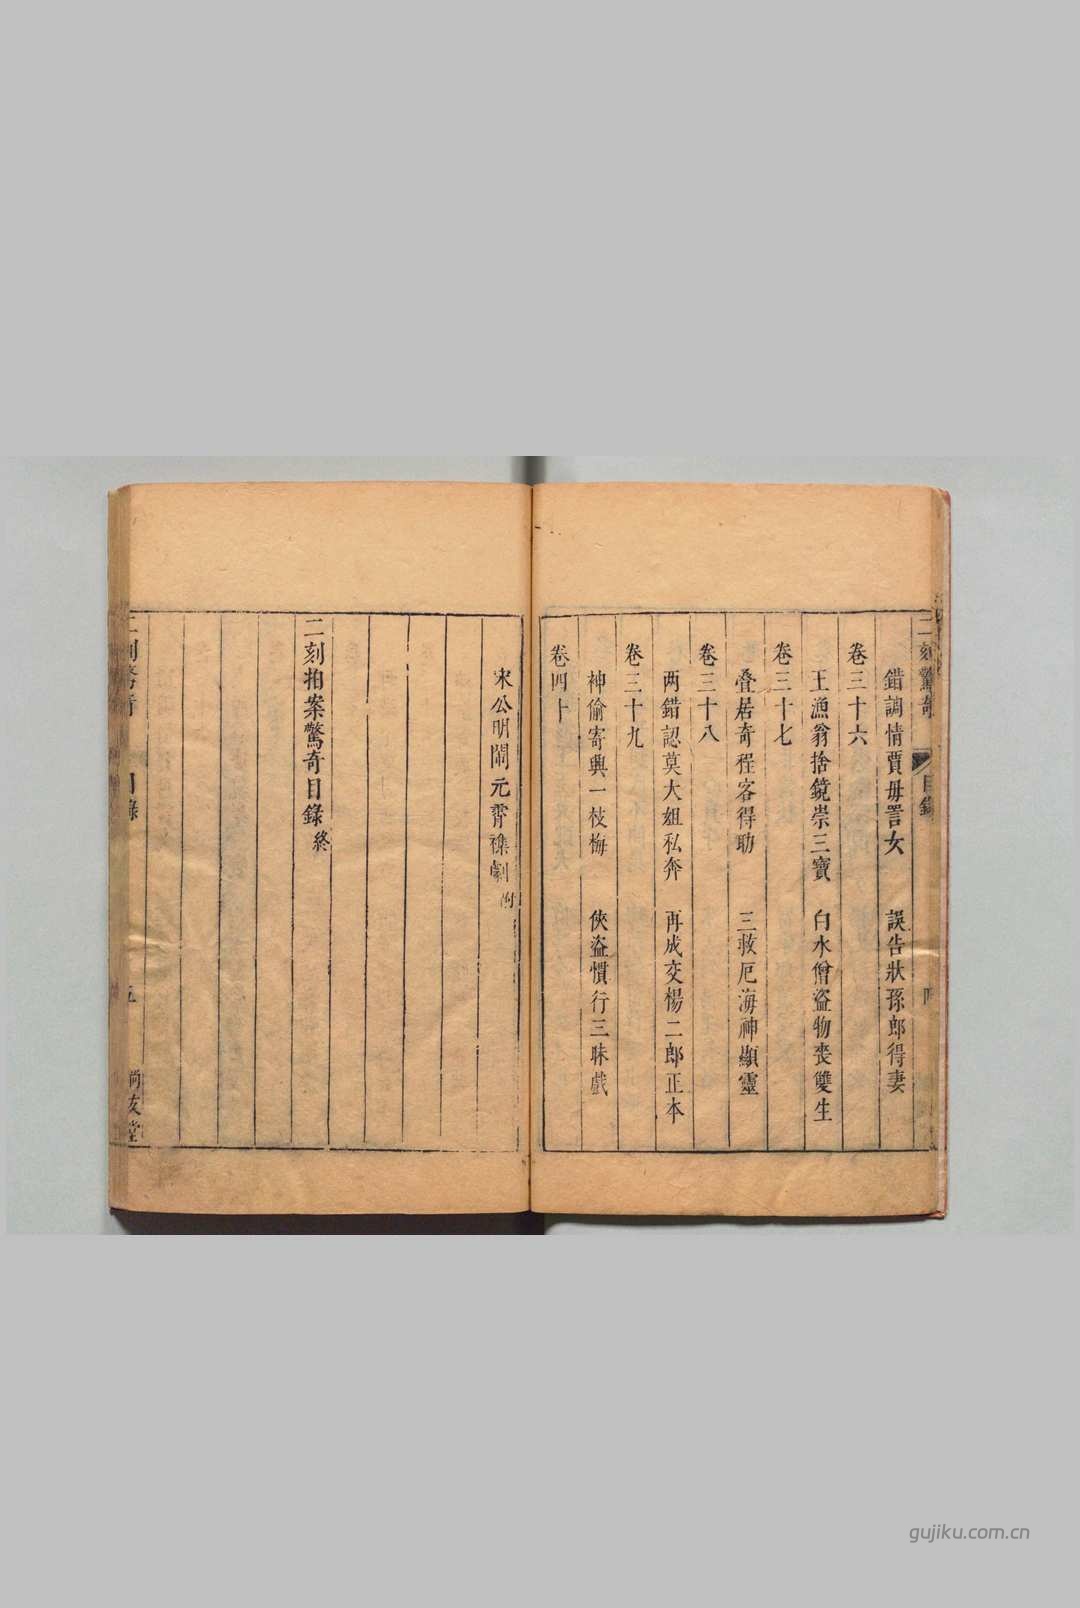 二刻驚奇 目錄 四
錯調情賈母詈女 誤告狀孫郎得妻
卷三十六
王漁翁捨鏡崇三寶 白水僧盜物喪雙生
卷三十七
叠居奇程客得助 三救厄海神顯靈
卷三十八
两錯認莫大姐私奔 再成交楊二郎正本
卷三十九
神偷寄興一枝梅 俠盜慣行三昧戲
卷四十
宋公明鬧元霄襍劇 附
二刻拍案驚奇目錄 終
二刻驚奇 目錄 五 尚友堂
gujiku.com.cn